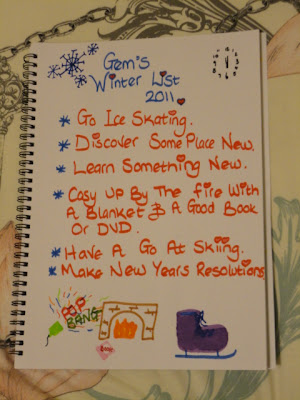 Gem's
Winter List
2011
* Go Ice Skating.
* Discover Some Place New.
* Learn Something New.
* Cosy Up By The fire With
A Blanket & A Good Book
Or DVD.
* Have A Go At Skiing.
* Make New Years Resolutions
POP
BANG